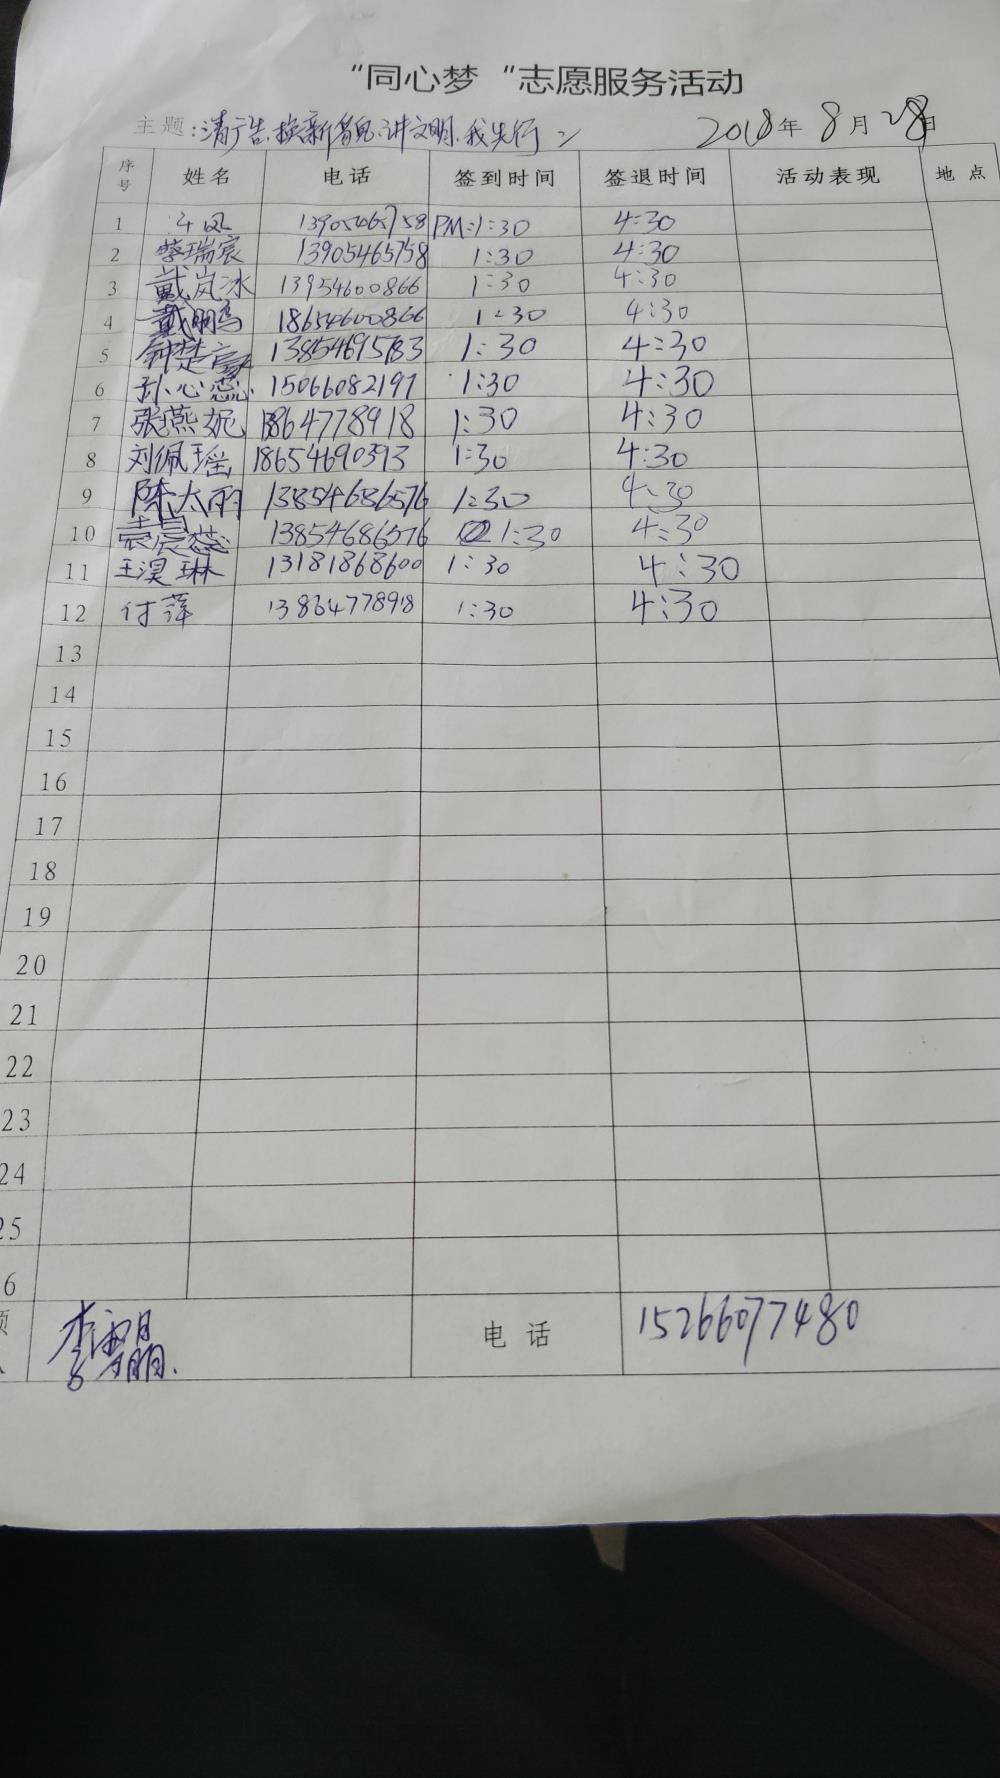 “同心梦“志愿服务活动
主题:清广告、换新貌、讲文明、我先行 2018年8月28日
序号 姓名 电话 签到时间 签退时间 活动表现 地点
1 13905465758 PM:1:30 4:30
2 蔡瑞宸 13905465758 1:30 4:30
3 戴岚冰 13954600866 1:30 4:30
4 戴鹏 18654600866 1:30 4:30
5 钟楚豪 1:30 4:30
6 孙心蕊 15066082197 1:30 4:30
7 张燕妮 1:30 4:30
8 刘佩瑶 18654690393 1:30 4:30
9 陈太雨 13854686576 1:30 4:30
10 袁晨蕊 13854686576 1:30 4:30
11 王淏琳 13181868600 1:30 4:30
12 付萍 13864778918 1:30 4:30
13
14
15
16
17
18
19
20
21
22
23
24
25
6
李雪朋 电话 15266077480